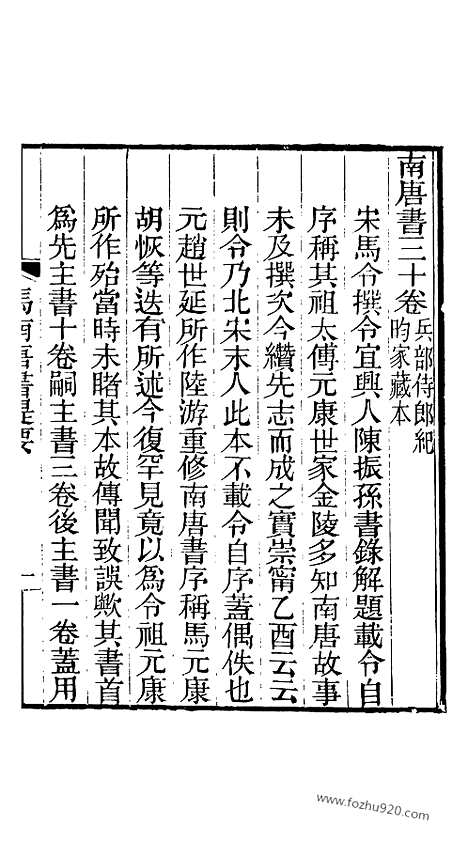 南唐書三十卷兵部侍郎紀昀家藏本
宋馬令撰令宜興人陳振孫書錄解題載令自
序稱其祖太傅元康世家金陵多知南唐故事
未及撰次今纘先志而成之實崇甯乙酉云云
則令乃北宋末人此本不載令自序蓋偶佚也
元趙世延所作陸游重修南唐書序稱馬元康
胡恢等迭有所述今復罕見竟以為令祖元康
所作殆當時未睹其本故傳聞致誤歟其書首
為先主書十卷嗣主書三卷後主書一卷蓋用
馬南唐書提要
一
www.fozhu920.com